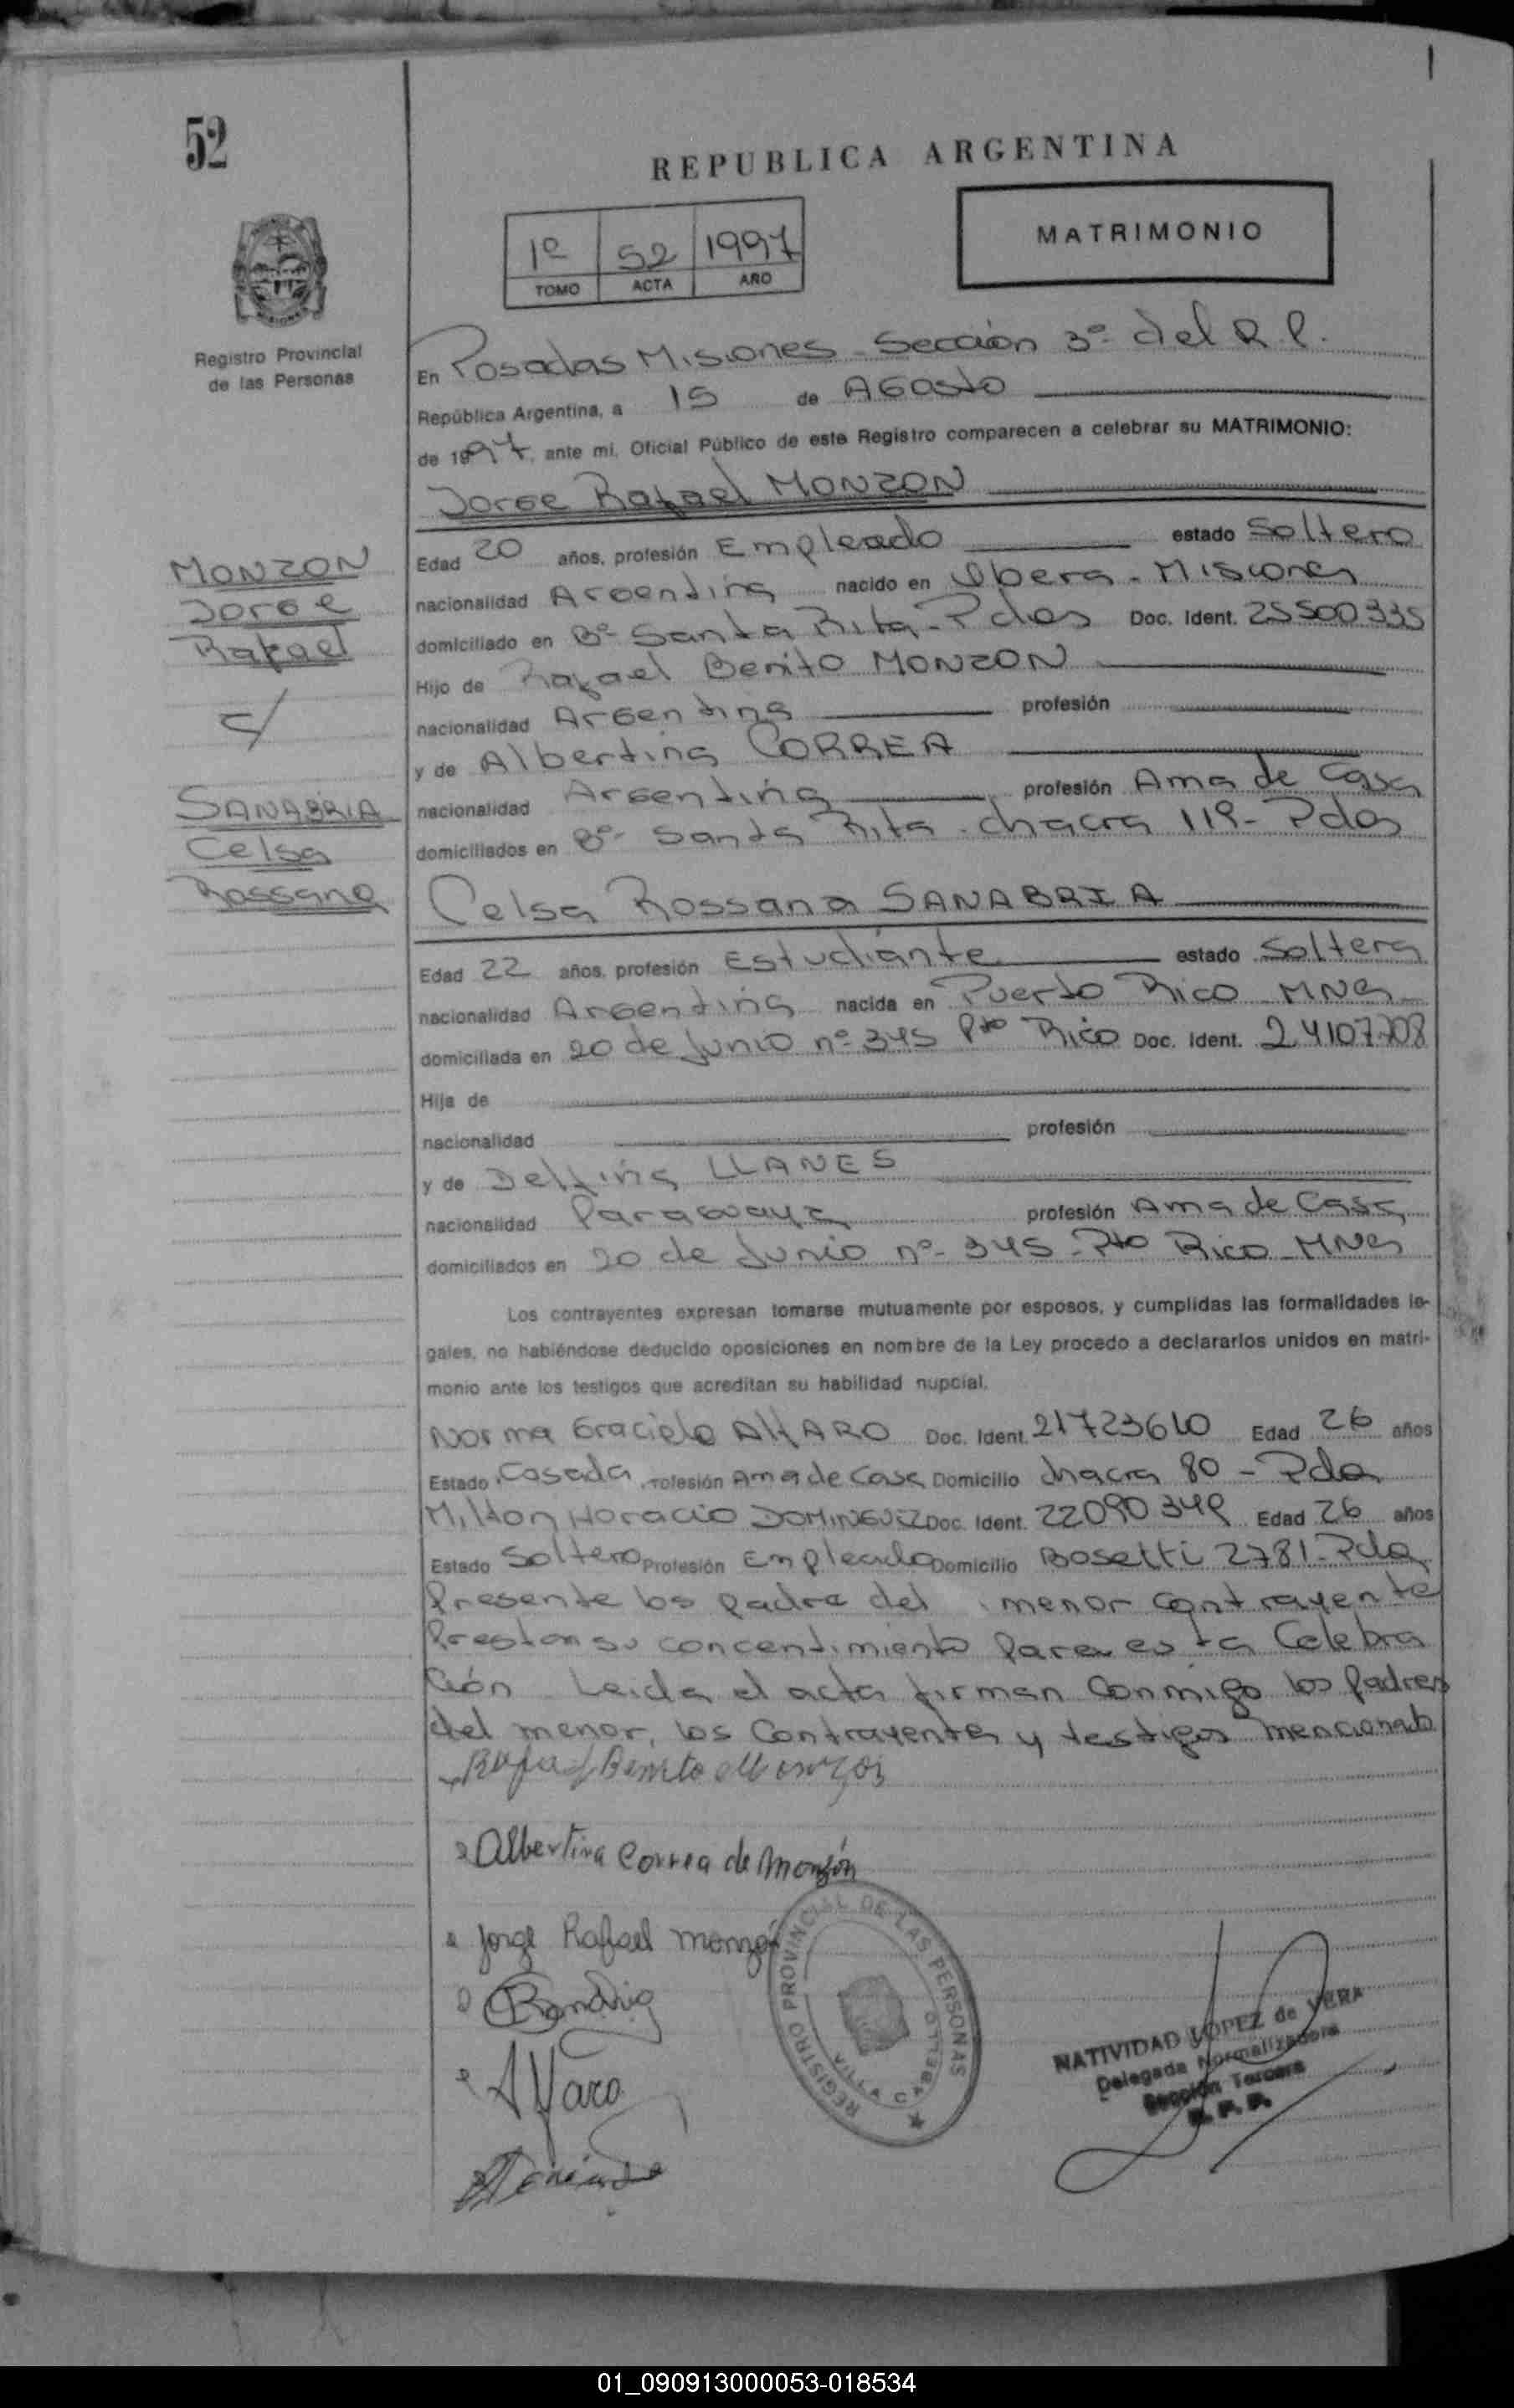 52
REPUBLICA ARGENTINA
1º 52 1997
TOMO ACTA AÑO
MATRIMONIO
Registro Provincial
de las Personas
En Posadas Misiones - Sección 3º del R.P.
República Argentina, a 15 de Agosto
de 1997, ante mi, Oficial Público de este Registro comparecen a celebrar su MATRIMONIO:
Jorge Rafael MONZON
Edad 20 años, profesión Empleado estado Soltero
nacionalidad Argentina nacido en Obera - Misiones
domiciliado en Bº Santa Rita - Pdas Doc. Ident. 25500335
Hijo de Rafael Benito MONZON
nacionalidad Argentina profesión
y de Albertina CORREA
nacionalidad Argentina profesión Ama de Casa
domiciliados en Bº Santa Rita - chacra 119 - Pdas
MONZON
Jorge
Rafael
c/
SANABRIA
Celsa
Rossana
Celsa Rossana SANABRIA
Edad 22 años, profesión Estudiante estado Soltera
nacionalidad Argentina nacida en Puerto Rico MNes
domiciliada en 20 de Junio nº 345 Pto Rico Doc. Ident. 24107708
Hija de
nacionalidad profesión
y de Delfina LLANES
nacionalidad Paraguaya profesión Ama de Casa
domiciliados en 20 de Junio nº 345 - Pto Rico - MNes
Los contrayentes expresan tomarse mutuamente por esposos, y cumplidas las formalidades le-
gales, no habiéndose deducido oposiciones en nombre de la Ley procedo a declararlos unidos en matri-
monio ante los testigos que acreditan su habilidad nupcial.
Norma Graciela AlfARO Doc. Ident. 21723610 Edad 26 años
Estado Casada Profesión Ama de Casa Domicilio chacra 80 - Pda
Milton Horacio DOMINGUEZ Doc. Ident. 22090349 Edad 26 años
Estado Soltero Profesión Empleado Domicilio Bosetti 2781 - Pda
Presente los padre del menor contrayente
Prestan su concentimiento para esta Celebra
ción Leida el acta firman conmigo los padres
del menor, los Contrayentes y testigos mencionado
Rafael Benito Monzon
Albertina Correa de Monzón
Jorge Rafael Monzón
Alfaro
REGISTRO PROVINCIAL DE LAS PERSONAS
VILLA CABELLO
NATIVIDAD LOPEZ de VERA
Delegada Normalizadora
Sección Tercera
R. P. P.
01_090913000053-018534